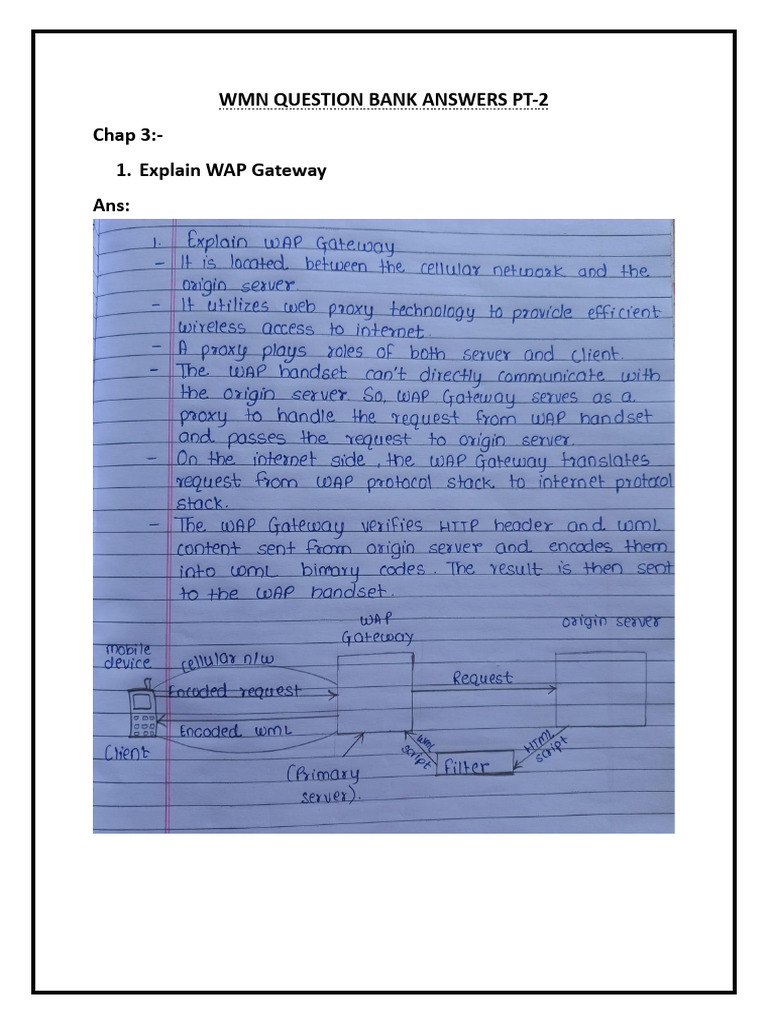 WMN QUESTION BANK ANSWERS PT-2
Chap 3:-
1. Explain WAP Gateway
Ans:
1. Explain WAP Gateway
- It is located between the cellular network and the
origin server.
- It utilizes web proxy technology to provide efficient
wireless access to internet.
- A proxy plays roles of both server and client.
- The WAP handset can't directly communicate with
the origin server. So, WAP Gateway serves as a
proxy to handle the request from WAP handset
and passes the request to origin server.
- On the internet side, the WAP Gateway translates
request from WAP protocol stack to internet protocol
stack.
- The WAP Gateway verifies HTTP header and WML
content sent from origin server and encodes them
into WML bimary codes. The result is then sent
to the WAP handset.
WAP
Gateway
origin server
mobile
device
cellular n/w
Encoded request
Request
Encoded WML
Client
WML
script
Filter
HTML
script
(Primary
server).